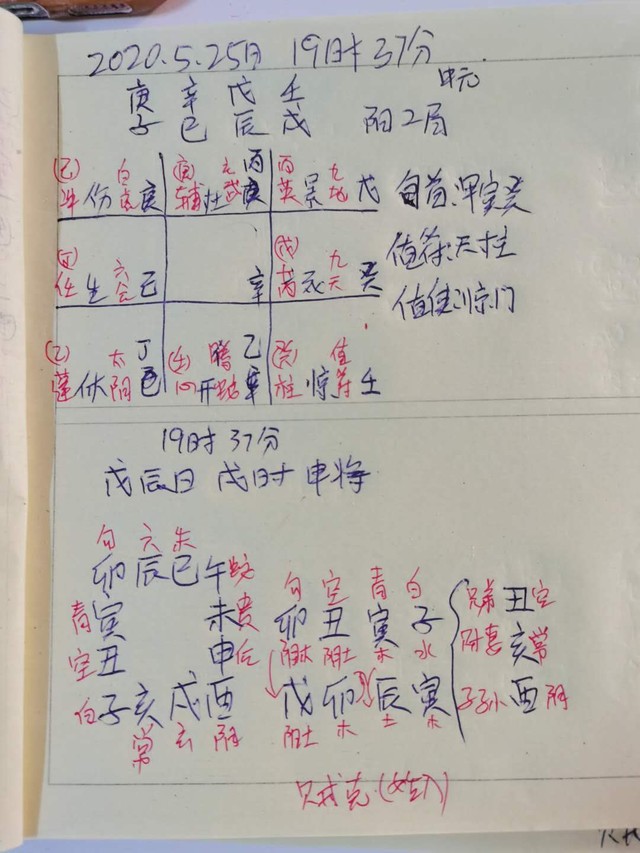 2020.5.25日 19时37分
中元
庚 辛 戊 壬
子 巳 辰 戌 阳二局
白 元 丙 丙 九
伤 虎 庚 辅 杜 武 庚 英 景 地 戊
旬首:甲寅癸
值符:天柱
六 九
任 生 合 己 辛 芮 死 天 癸
值使:惊门
太 丁 腾 乙 值
蓬 休 阴 己 心 开 蛇 辛 柱 惊 符 壬
19时37分
戊辰日 戌时 申将
勾 六 朱
卯 辰 巳 午 蛇 勾 空 青 白
青 寅 未 贵 卯 丑 寅 子 兄弟 丑 空
阴木 阴土 木 水 财妻 亥 常
空 丑 申 后
白 子 亥 戌 酉 戊 卯 辰 寅 子孙 酉 阴
常 玄 阴 阳土 木 土 木